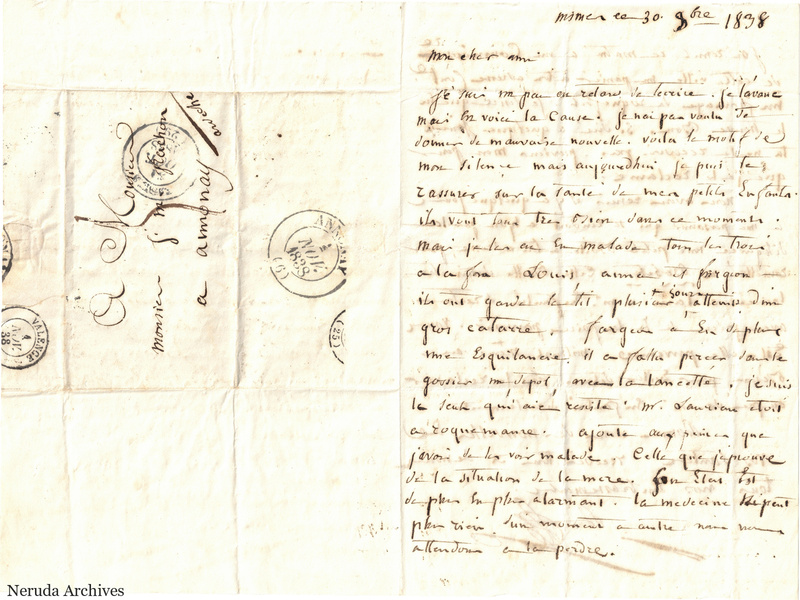 ce 30. 8bre 1838
mon cher ami
je suis un peu en retard de t'ecrire. je l'avoue
mais En voici la Cause. je n'ai pas voulu te
donner de mauvaise nouvelle. voila le motif de
mon silence mais aujourdhui je puis te
rassurer sur la santé de mes petits Enfants.
ils vont tous tres bien dans ce moment.
mais je les ai Eu malade tous les trois
a la fois Louis anne et
ils ont garde le lit plusieurs jours attemis d'un
gros catarre. a Eu de plus
une Esquilancie. il a fallu percer dans le
gossier un depot, avec la lancette. je suis
le seul qui aie resisté. mr. Laurian etoit
a roquemaure. ajoute aux peines que
j'avois de les voir malade. Celle que j'eprouve
de la situation de la mere. son Etat Est
de plus En plus alarmant. la medecine n'y peut
plus rien. d'un moment a autre nous nous
attendons a la perdre.
A Monsieur
monsieur S. m. frachon
a annonay
ardeche
ANNONAY
4
NOV.
1838
(6)
VALENCE
4
NOV
38
25
Neruda Archives